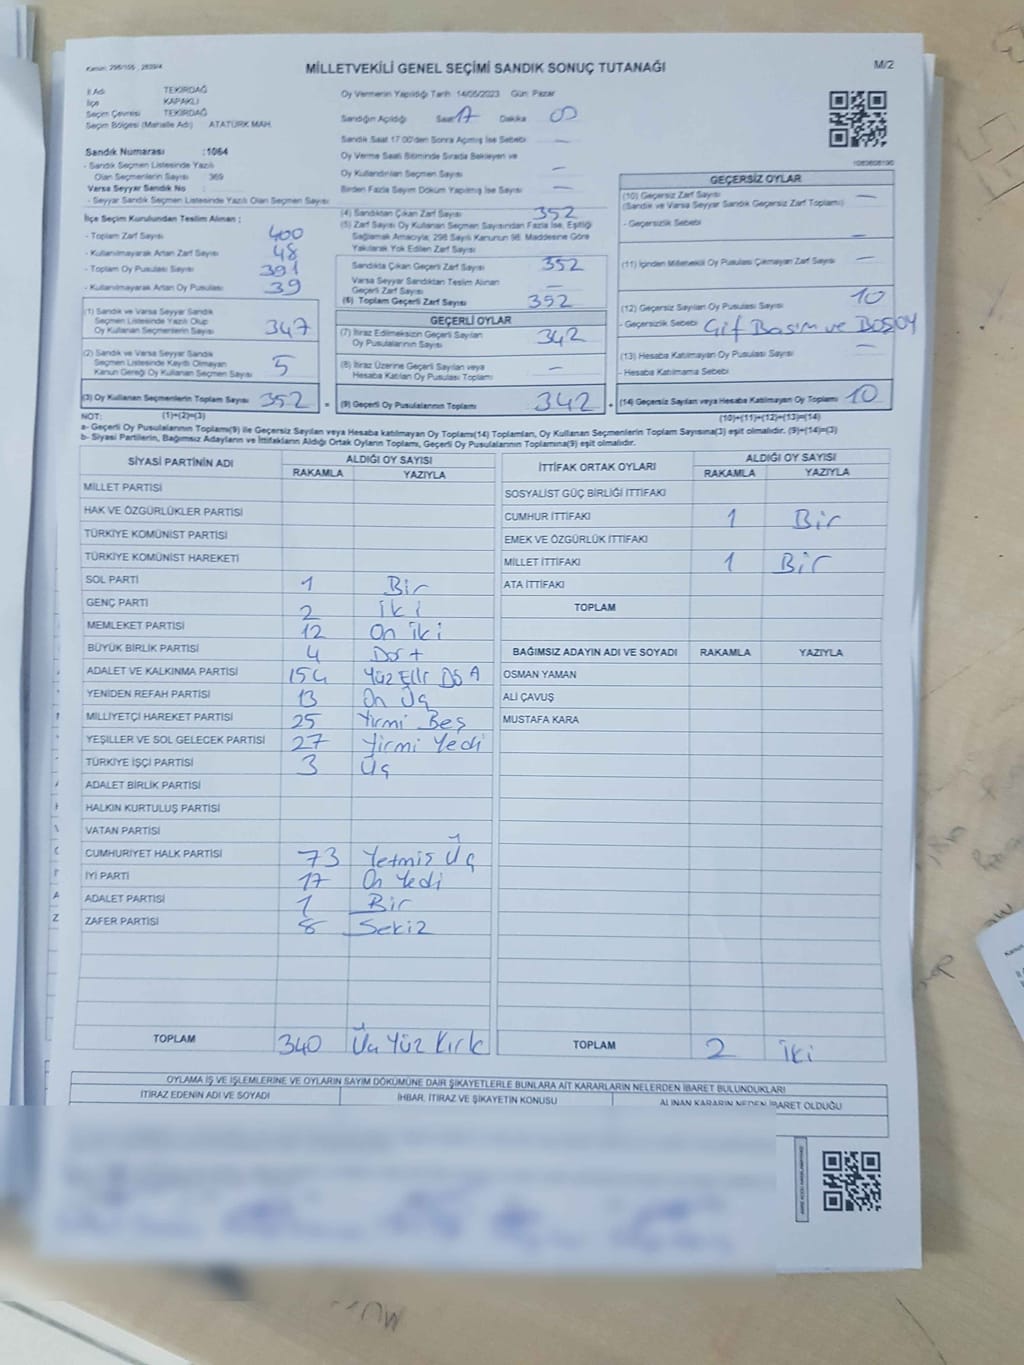 Kanun: 298/105 , 2839/4
MİLLETVEKİLİ GENEL SEÇİMİ SANDIK SONUÇ TUTANAĞI
M/2
İl Adı TEKİRDAĞ
İlçe KAPAKLI
Seçim Çevresi TEKİRDAĞ
Seçim Bölgesi (Mahalle Adı) ATATÜRK MAH.
Oy Vermenin Yapıldığı Tarih: 14/05/2023 Gün: Pazar
Sandığın Açıldığı Saat 17 Dakika 00
Sandık Saat 17.00'den Sonra Açılmış İse Sebebi —
Oy Verme Saati Bitiminde Sırada Bekleyen ve
Oy Kullandırılan Seçmen Sayısı —
Birden Fazla Sayım Döküm Yapılmış İse Sayısı —
Sandık Numarası :1064
- Sandık Seçmen Listesinde Yazılı
Olan Seçmenlerin Sayısı 369
Varsa Seyyar Sandık No :
- Seyyar Sandık Seçmen Listesinde Yazılı Olan Seçmen Sayısı:
İlçe Seçim Kurulundan Teslim Alınan ;
- Toplam Zarf Sayısı 400
- Kullanılmayarak Artan Zarf Sayısı 48
- Toplam Oy Pusulası Sayısı 391
- Kullanılmayarak Artan Oy Pusulası 39
(1) Sandık ve Varsa Seyyar Sandık
Seçmen Listesinde Yazılı Olup
Oy Kullanan Seçmenlerin Sayısı 347
(2) Sandık ve Varsa Seyyar Sandık
Seçmen Listesinde Kayıtlı Olmayan
Kanun Gereği Oy Kullanan Seçmen Sayısı 5
(3) Oy Kullanan Seçmenlerin Toplam Sayısı 352
(4) Sandıktan Çıkan Zarf Sayısı 352
(5) Zarf Sayısı Oy Kullanan Seçmen Sayısından Fazla İse, Eşitliği
Sağlamak Amacıyla; 298 Sayılı Kanunun 98. Maddesine Göre
Yakılarak Yok Edilen Zarf Sayısı
Sandıkta Çıkan Geçerli Zarf Sayısı 352
Varsa Seyyar Sandıktan Teslim Alınan
Geçerli Zarf Sayısı —
(6) Toplam Geçerli Zarf Sayısı 352
GEÇERLİ OYLAR
(7) İtiraz Edilmeksizin Geçerli Sayılan
Oy Pusulalarının Sayısı 342
(8) İtiraz Üzerine Geçerli Sayılan veya
Hesaba Katılan Oy Pusulası Toplamı —
= (9) Geçerli Oy Pusulalarının Toplamı 342
GEÇERSİZ OYLAR
(10) Geçersiz Zarf Sayısı —
(Sandık ve Varsa Seyyar Sandık Geçersiz Zarf Toplamı)
- Geçersizlik Sebebi —
(11) İçinden Milletvekili Oy Pusulası Çıkmayan Zarf Sayısı —
(12) Geçersiz Sayılan Oy Pusulası Sayısı 10
- Geçersizlik Sebebi Çif Basım ve Boş Oy
(13) Hesaba Katılmayan Oy Pusulası Sayısı —
- Hesaba Katılmama Sebebi
+ (14) Geçersiz Sayılan veya Hesaba Katılmayan Oy Toplamı 10
NOT: (1)+(2)=(3)
(10)+(11)+(12)+(13)=(14)
a- Geçerli Oy Pusulalarının Toplamı(9) ile Geçersiz Sayılan veya Hesaba katılmayan Oy Toplamı(14) Toplamları, Oy Kullanan Seçmenlerin Toplam Sayısına(3) eşit olmalıdır. (9)+(14)=(3)
b- Siyasi Partilerin, Bağımsız Adayların ve İttifakların Aldığı Ortak Oyların Toplamı, Geçerli Oy Pusulalarının Toplamına(9) eşit olmalıdır.
SİYASİ PARTİNİN ADI ALDIĞI OY SAYISI
RAKAMLA YAZIYLA
MİLLET PARTİSİ
HAK VE ÖZGÜRLÜKLER PARTİSİ
TÜRKİYE KOMÜNİST PARTİSİ
TÜRKİYE KOMÜNİST HAREKETİ
SOL PARTİ 1 Bir
GENÇ PARTİ 2 İki
MEMLEKET PARTİSİ 12 On iki
BÜYÜK BİRLİK PARTİSİ 4 Dört
ADALET VE KALKINMA PARTİSİ 154 Yüz Elli
YENİDEN REFAH PARTİSİ 13 On Üç
MİLLİYETÇİ HAREKET PARTİSİ 25 Yirmi Beş
YEŞİLLER VE SOL GELECEK PARTİSİ 27 Yirmi Yedi
TÜRKİYE İŞÇİ PARTİSİ 3 Üç
ADALET BİRLİK PARTİSİ
HALKIN KURTULUŞ PARTİSİ
VATAN PARTİSİ
CUMHURİYET HALK PARTİSİ 73 Yetmiş Üç
İYİ PARTİ 17 On Yedi
ADALET PARTİSİ 1 Bir
ZAFER PARTİSİ 8 Sekiz
TOPLAM 340 Üç Yüz Kırk
İTTİFAK ORTAK OYLARI ALDIĞI OY SAYISI
RAKAMLA YAZIYLA
SOSYALİST GÜÇ BİRLİĞİ İTTİFAKI
CUMHUR İTTİFAKI 1 Bir
EMEK VE ÖZGÜRLÜK İTTİFAKI
MİLLET İTTİFAKI 1 Bir
ATA İTTİFAKI
TOPLAM
BAĞIMSIZ ADAYIN ADI VE SOYADI RAKAMLA YAZIYLA
OSMAN YAMAN
ALİ ÇAVUŞ
MUSTAFA KARA
TOPLAM 2 İki
OYLAMA İŞ VE İŞLEMLERİNE VE OYLARIN SAYIM DÖKÜMÜNE DAİR ŞİKAYETLERLE BUNLARA AİT KARARLARIN NELERDEN İBARET BULUNDUKLARI
İTİRAZ EDENİN ADI VE SOYADI İHBAR, İTİRAZ VE ŞİKAYETİN KONUSU ALINAN KARARIN NEDEN İBARET OLDUĞU